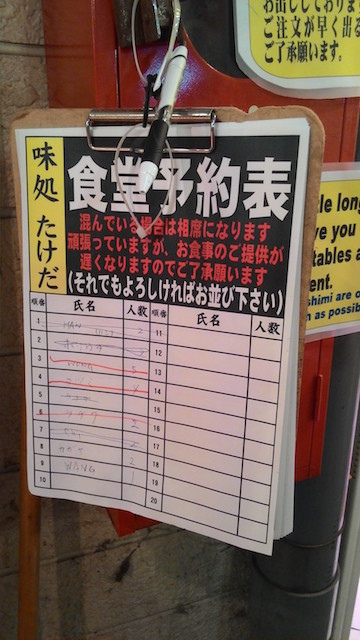 お出ししております
ご注文が早く出る
ご了承願います。
味処 たけだ
食堂予約表
混んでいる場合は相席になります
頑張っていますが、お食事のご提供が
遅くなりますのでご了承願います
(それでもよろしければお並び下さい)
順番 氏名 人数 順番 氏名 人数
1 11
2 12
3 13
4 14
5 15
6 16
7 17
8 18
9 WONG 19
10 20
le long
ve you
tables a
ent.
shimi are o
n as possib